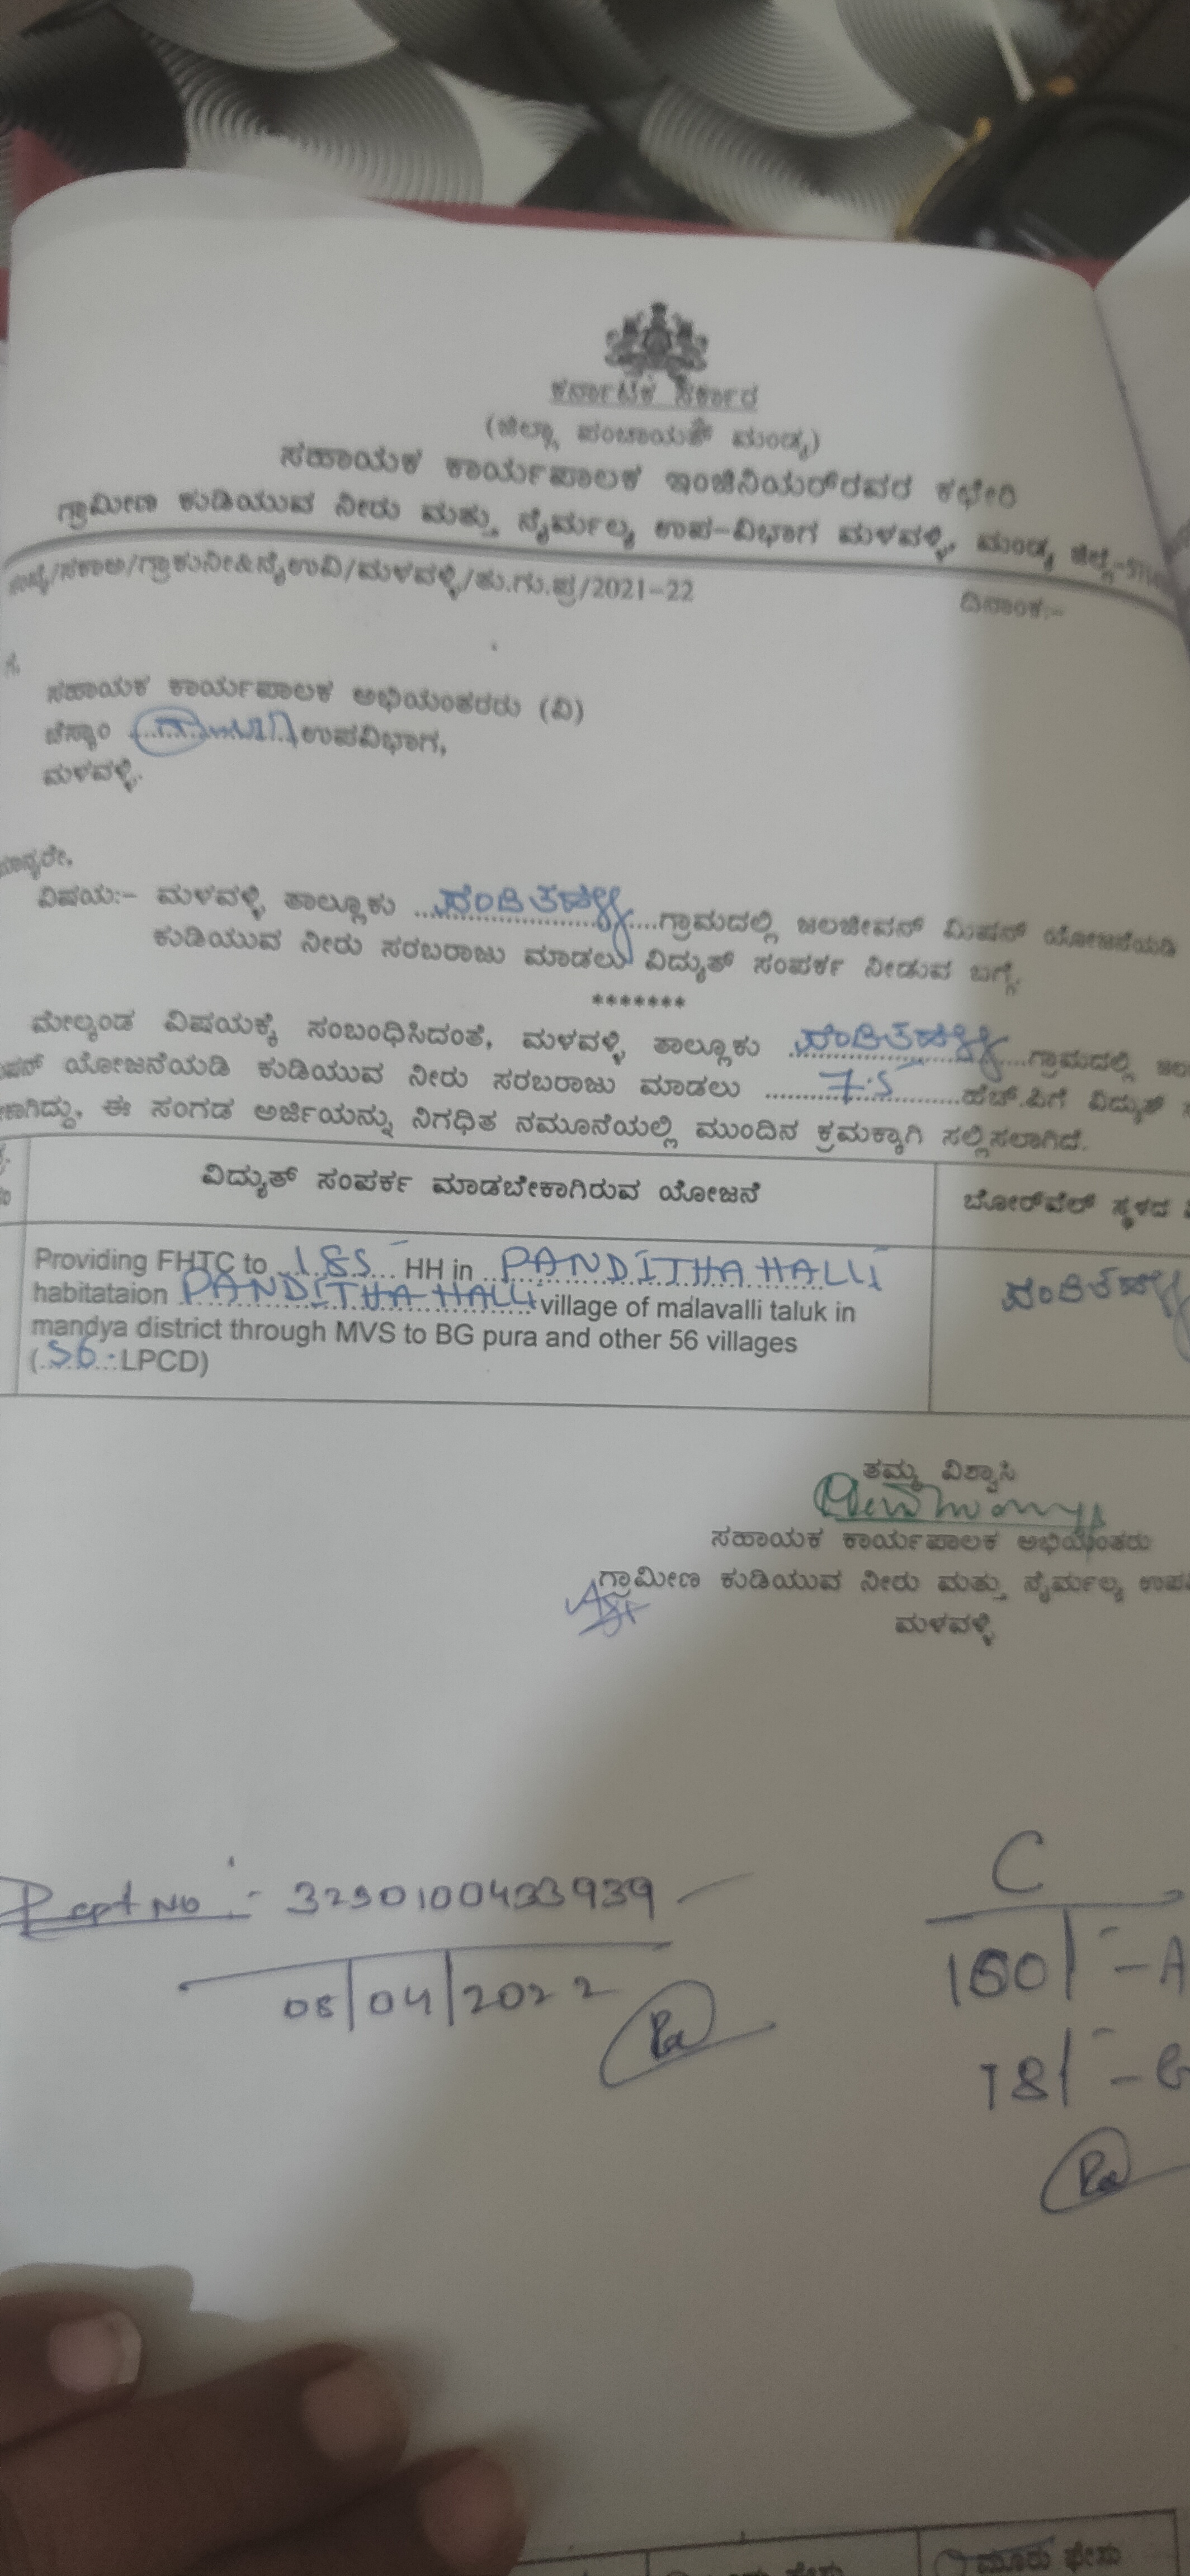 ಕರ್ನಾಟಕ ಸರ್ಕಾರ
(ಜಿಲ್ಲಾ ಪಂಚಾಯತ್ ಮಂಡ್ಯ)
ಸಹಾಯಕ ಕಾರ್ಯಪಾಲಕ ಇಂಜಿನಿಯರ್‌ರವರ ಕಛೇರಿ
ಗ್ರಾಮೀಣ ಕುಡಿಯುವ ನೀರು ಮತ್ತು ನೈರ್ಮಲ್ಯ ಉಪ-ವಿಭಾಗ ಮಳವಳ್ಳಿ, ಮಂಡ್ಯ ಜಿಲ್ಲೆ-
/ಸಕಾಅ/ಗ್ರಾಕುನೀ&ನೈಉವಿ/ಮಳವಳ್ಳಿ/ತು.ಗು.ಪ್ರ/2021-22 ದಿನಾಂಕ:-
ಗೆ,
ಸಹಾಯಕ ಕಾರ್ಯಪಾಲಕ ಅಭಿಯಂತರರು (ವಿ)
ಚೆಸ್ಕಾಂ ಉಪವಿಭಾಗ,
ಮಳವಳ್ಳಿ.
ಮಾನ್ಯರೇ,
ವಿಷಯ:- ಮಳವಳ್ಳಿ ತಾಲ್ಲೂಕು ಪಂಡಿತಹಳ್ಳಿ ಗ್ರಾಮದಲ್ಲಿ ಜಲಜೀವನ್ ಮಿಷನ್ ಯೋಜನೆಯಡಿ
ಕುಡಿಯುವ ನೀರು ಸರಬರಾಜು ಮಾಡಲು ವಿದ್ಯುತ್ ಸಂಪರ್ಕ ನೀಡುವ ಬಗ್ಗೆ.
*******
ಮೇಲ್ಕಂಡ ವಿಷಯಕ್ಕೆ ಸಂಬಂಧಿಸಿದಂತೆ, ಮಳವಳ್ಳಿ ತಾಲ್ಲೂಕು ಪಂಡಿತಹಳ್ಳಿ ಗ್ರಾಮದಲ್ಲಿ ಜಲ
ಷನ್ ಯೋಜನೆಯಡಿ ಕುಡಿಯುವ ನೀರು ಸರಬರಾಜು ಮಾಡಲು 7.5 ಹೆಚ್.ಪಿಗೆ ವಿದ್ಯುತ್
ಕಾಗಿದ್ದು, ಈ ಸಂಗಡ ಅರ್ಜಿಯನ್ನು ನಿಗಧಿತ ನಮೂನೆಯಲ್ಲಿ ಮುಂದಿನ ಕ್ರಮಕ್ಕಾಗಿ ಸಲ್ಲಿಸಲಾಗಿದೆ.
ವಿದ್ಯುತ್ ಸಂಪರ್ಕ ಮಾಡಬೇಕಾಗಿರುವ ಯೋಜನೆ
ಬೋರ್‌ವೆಲ್ ಸ್ಥಳದ
Providing FHTC to 185 HH in PANDITHAHALLI
habitataion PANDITHAHALLI village of malavalli taluk in
mandya district through MVS to BG pura and other 56 villages
(56 LPCD)
ಪಂಡಿತಹಳ್ಳಿ
ತಮ್ಮ ವಿಶ್ವಾಸಿ
ಸಹಾಯಕ ಕಾರ್ಯಪಾಲಕ ಅಭಿಯಂತರು
ಗ್ರಾಮೀಣ ಕುಡಿಯುವ ನೀರು ಮತ್ತು ನೈರ್ಮಲ್ಯ ಉಪ
ಮಳವಳ್ಳಿ
Rcpt No :- 3290100433939
08/04/2022
C
150/- - A
18/- -